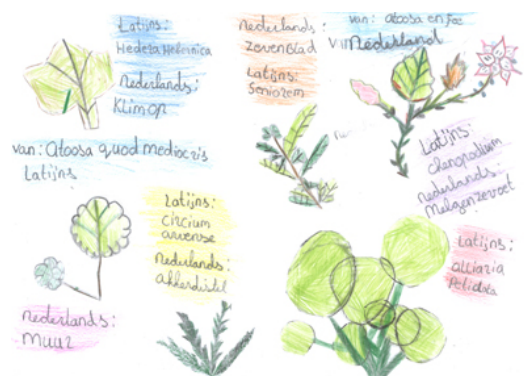 Latijns:
Hedera Helernica
Nederlands:
Klimop
Nederlands:
Zevenblad
Latijns:
Seniozem
van: atoosa en foe
Nederland
van: Atoosa quod mediocris
Latijns
Latijns:
chenopodium
nederlands:
Melganzevoet
Latijns:
circium
arvense
Nederlands:
Akkerdistel
Latijns:
alliaria
Petidola
Nederlands:
Muur